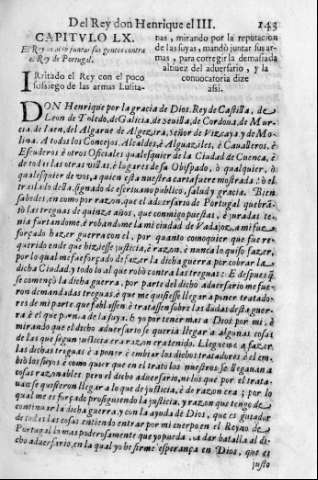 Del Rey don Henrique el III. 143
CAPITVLO LX.
El Rey mandó juntar sus gentes contra
el Rey de Portugal.
IRritado el Rey con el poco
sossiego de las armas Lusita-
nas, mirando por la reputacion
de las suyas, mandò juntar sus ar-
mas, para corregir la demasiada
altiuez del aduersario, y la
conuocatoria dize
assi.
DON Henrique por la gracia de Dios, Rey de Castilla, de
Leon de Toledo, de Galicia, de Seuilla, de Cordoua, de Mur-
cia, de Iaen, del Algarue de Algezira, Señor de Vizcaya, y de Mo-
lina. A todos los Concejos, Alcaldes, è Alguaziles, è Caualleros, è
Escuderos è otros Oficiales qualesquier de la Ciudad de Cuenca, è
de todas las otras villas, è lugares de su Obispado, ò qualquier, ò
qualesquier de vos, a quien esta nuestra carta fuere mostrada: ò el
traslado della, signado de escriuano publico, salud y gracia. Bien
sabedes, en como por razon, que el aduersario de Portugal quebrã-
tò las treguas de quinze años, que conmigo puestas, è juradas te-
nia furtandome, è robandome la mi ciudad de Badajoz, a mi fue
forçado hazer guerra con el, por quanto como quier que fue re-
querido ende que hiziesse justicia, è razon, è nunca lo quiso fazer,
por lo qual me fue forçado de fazer la dicha guerra por cobrar la
dicha Ciudad, y todo lo al que robò contra las treguas: E despues q̃
se començò la dicha guerra, por parte del dicho aduersario me fue-
ron demandadas treguas, è que me quisiesse llegar a poner tratado-
res de mi parte que fablassen è tratassen sobre las dudas desta gue-
rra è el que pornia de la suya, è yo por tener mas a Dios por mi, è
mirando que el dicho aduersario se querria llegar a algunas cosas
de las que segun justicia era razon eratenido. Llegueme a fazer
las dichas treguas è a poner è embiar los dichos tratadores è el em-
biò los suyos è como quier que en el trato los nuestros se llegauan a
cosas razonables, pero el dicho aduersario, ni los que por el trata-
uan se quisieron llegar a lo que de justicia, è de razon era; por lo
qual me es forçado prosiguiendo la justicia, y razon que tengo de
continuar la dicha guerra, y con la ayuda de Dios, que es guiador
de todas las cosas entiendo entrar por mi cuerpo en el Reyno de
Portugal lo mas poderosamente que yo pueda, a dar batalla al di-
cho aduersario, en la qual yo he firme esperança en Dios, que es
justo